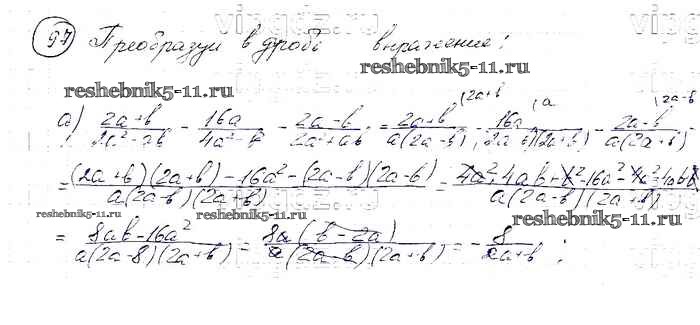 97 Преобразуй в дробь выражение:
reshebnik5-11.ru
reshebnik5-11.ru
а) (2a+b)/(2a²-ab) - 16a/(4a²-b) - (2a-b)/(2a²+ab) = (2a+b)/(a(2a-b)) |2a+b - 16a/((2a-b)(2a+b)) |a - (2a-b)/(a(2a+b)) |2a-b
= ((2a+b)(2a+b)-16a²-(2a-b)(2a-b))/(a(2a-b)(2a+b)) =
reshebnik5-11.ru reshebnik5-11.ru reshebnik5-11.ru
= (8ab-16a²)/(a(2a-b)(2a+b)) = (8a(b-2a))/(a(2a-b)(2a+b)) = -8/(2a+b);